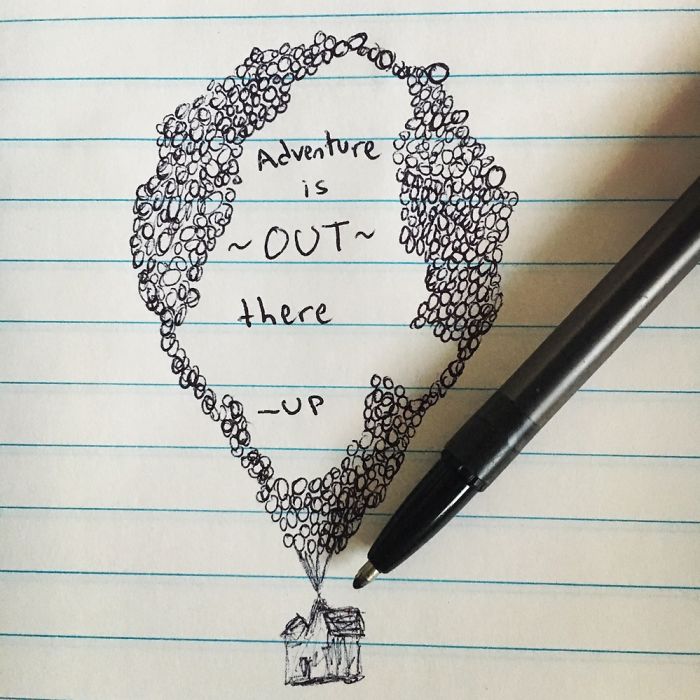 Adventure
is
~OUT~
there
-UP